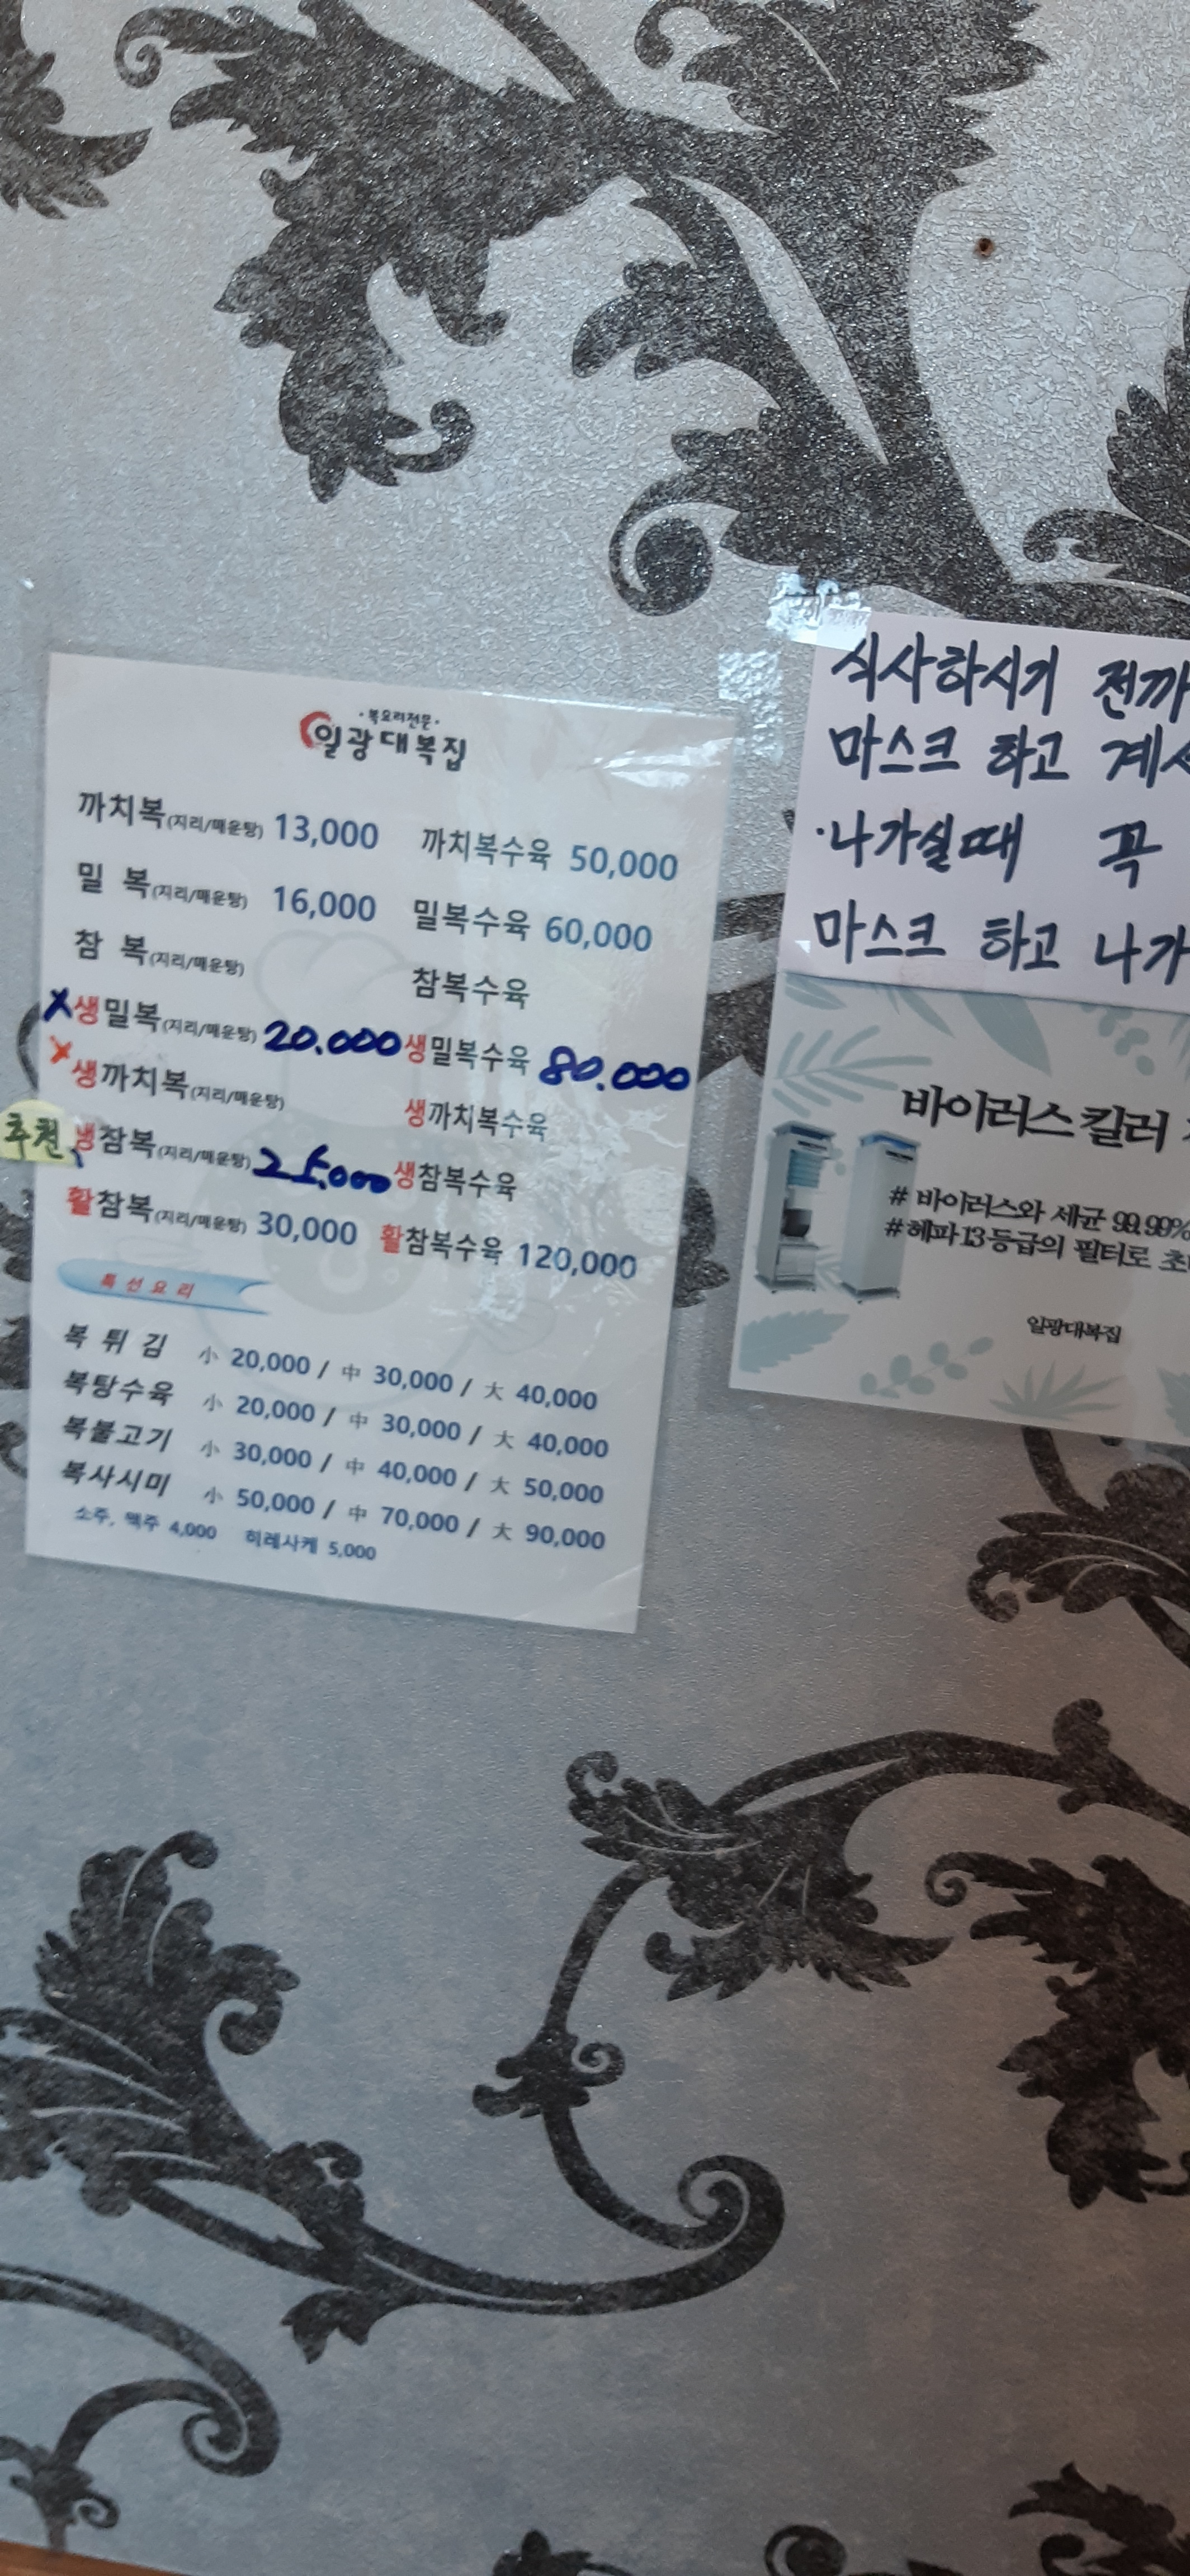 ·복요리전문·
일광대복집
까치복(지리/매운탕) 13,000 까치복수육 50,000
밀 복(지리/매운탕) 16,000 밀복수육 60,000
참 복(지리/매운탕) 참복수육
X생밀복(지리/매운탕) 20.000 생밀복수육 80.000
X생까치복(지리/매운탕) 생까치복수육
추천 생참복(지리/매운탕) 25.000 생참복수육
활참복(지리/매운탕) 30,000 활참복수육 120,000
특선요리
복 튀 김 小 20,000 / 中 30,000 / 大 40,000
복탕수육 小 20,000 / 中 30,000 / 大 40,000
복불고기 小 30,000 / 中 40,000 / 大 50,000
복사시미 小 50,000 / 中 70,000 / 大 90,000
소주, 맥주 4,000 히레사케 5,000
식사하시기 전까
마스크 하고 계
·나가실때 꼭
마스크 하고 나가
바이러스 킬러
# 바이러스와 세균 99.99%
# 헤파 13등급의 필터로 초
일광대복집